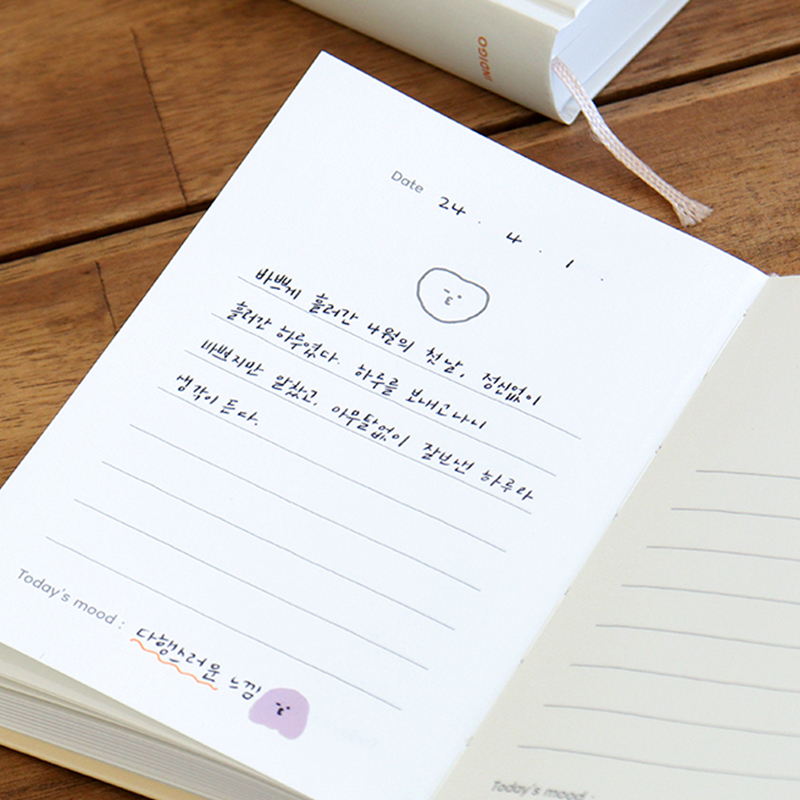 INDIGO
Date 24. 4. 1.
바쁘게 흘러간 4월의 첫날, 정신없이
흘러간 하루였다. 하루를 보내고나니
바쁘지만 알찼고, 아무탈없이 잘보낸 하루라
생각이 든다.
Today's mood : 다행스러운 느낌
Today's mood :